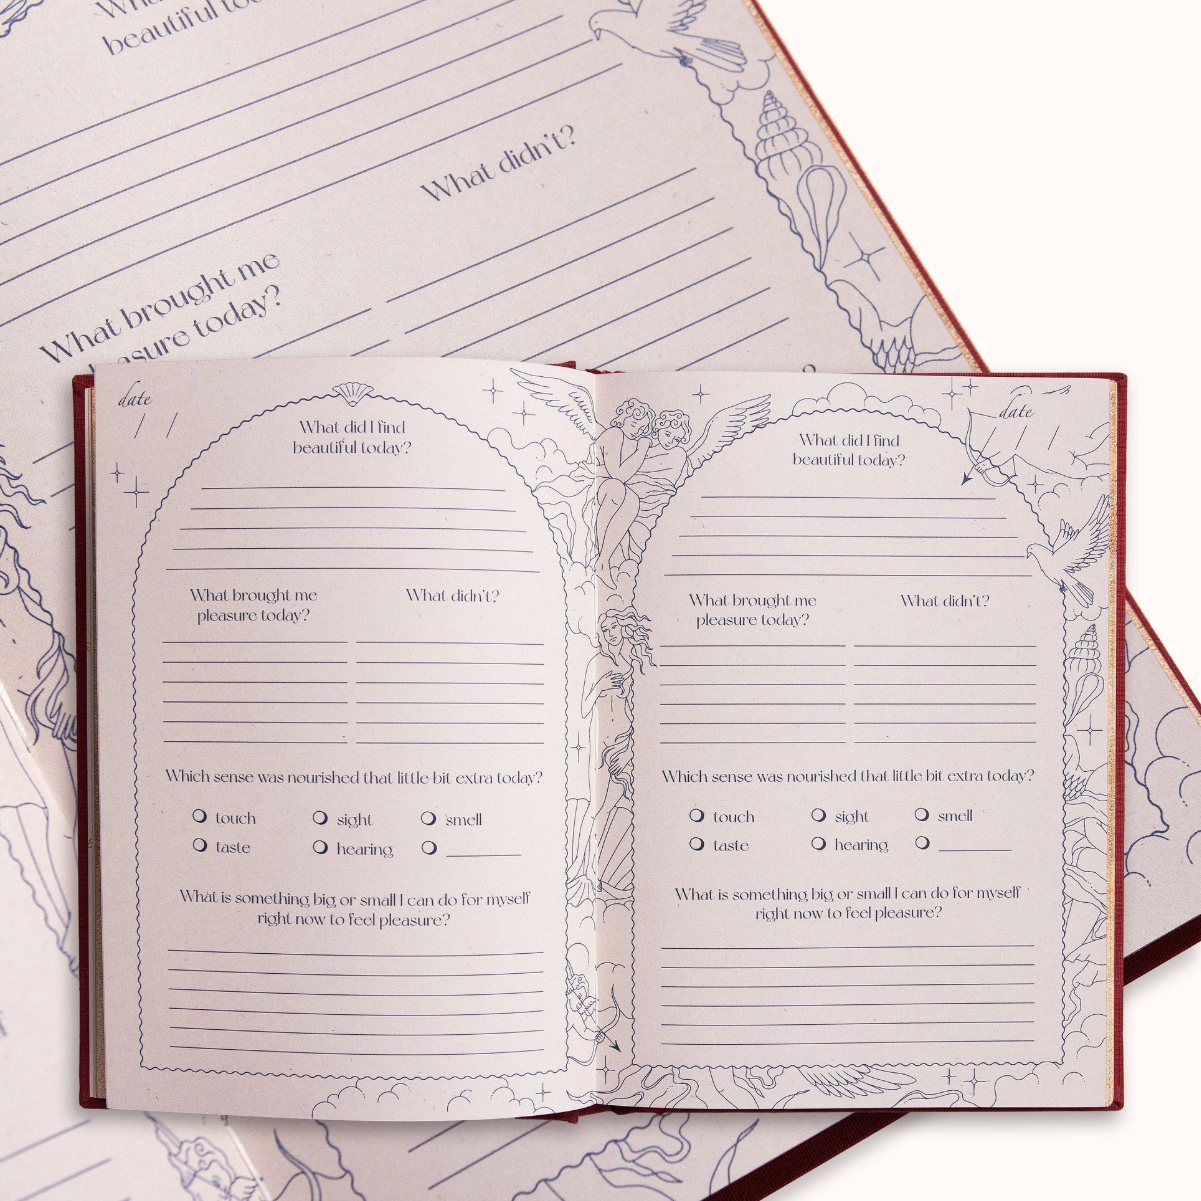 beautiful
What didn't?
What brought me
today?
date
/ /
What did I find
beautiful today?
What brought me
pleasure today?
What didn't?
Which sense was nourished that little bit extra today?
touch
sight
smell
taste
hearing
What is something big or small I can do for myself
right now to feel pleasure?
date
/ /
What did I find
beautiful today?
What brought me
pleasure today?
What didn't?
Which sense was nourished that little bit extra today?
touch
sight
smell
taste
hearing
What is something big or small I can do for myself
right now to feel pleasure?